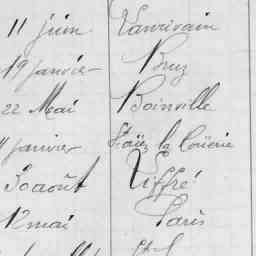 11 juin Vauvivain
19 janvier Bruz
22 Mai Boinville
janvier la Couërie
30 août Tiffré
12 mai Paris